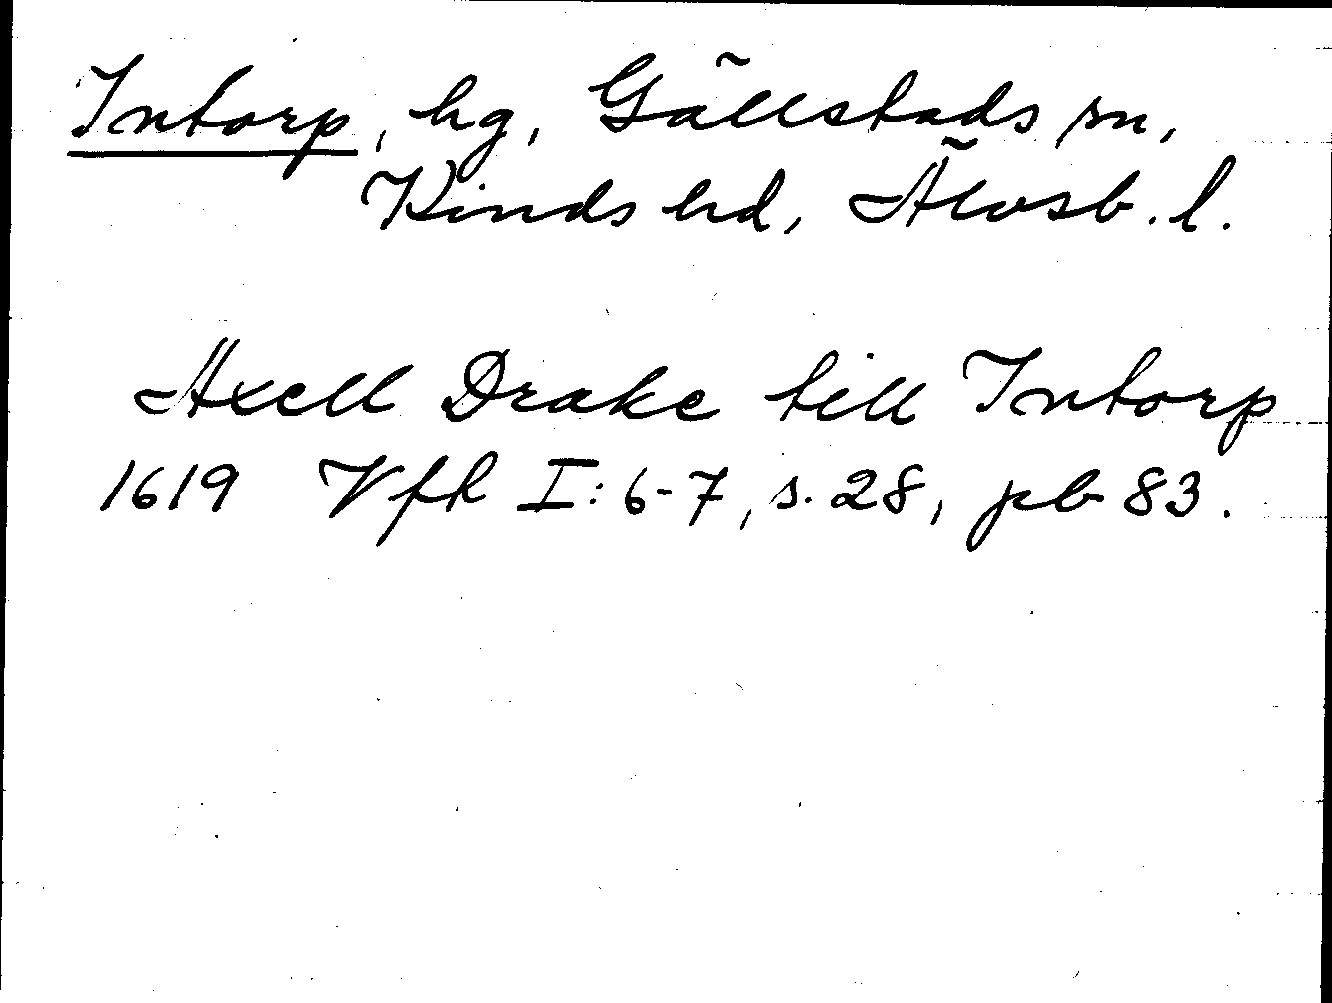 Intorp, hg, Gällstads sn,
Kinds hd, Älvsb. l.
Axell Drake till Intorp
1619 Vfh I: 6-7, s. 28, pb 83.